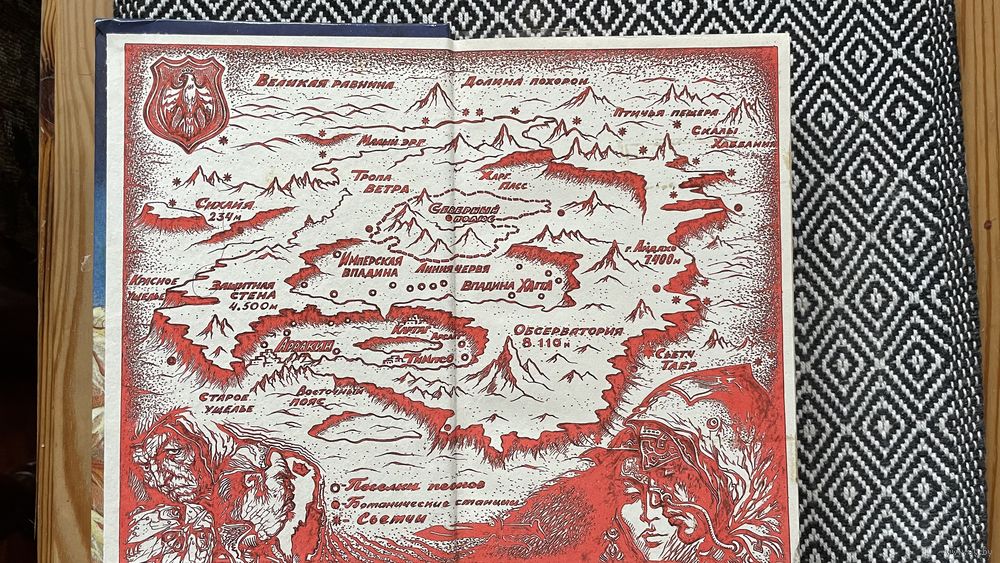 Великая равнина
Долина похорон
Птичья пещера
Малый эрг
Скалы
Хаббания
Тропа
ветра
Харг
пасс
Сихайя
234м
Северный
полюс
г. Айдахо
7400м
Имперская
впадина
Линия червя
Впадина Хагга
Красное
ущелье
Защитная
стена
4.500м
Картаг
Арсант
Обсерватория
8.110м
Арракин
Тимпо
Сьетч
Табр
Старое
ущелье
Восточный
пояс
- Поселки песков
- Ботанические станции
- Сьетчи